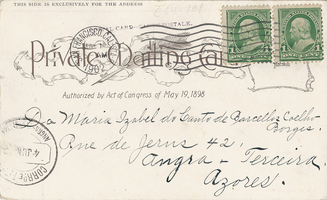 THIS SIDE IS EXCLUSIVELY FOR THE ADDRESS
CARD
Private Mailing Card
Authorized by Act of Congress of May 19, 1898
Dna Maria Izabel do Canto de Barcellos Coelho
Borges.
Rue de Jesus 42,
Angra - Terceira
Azores.
SAN FRANCISCO, CAL.
CORREIO
4 JUN
1
1